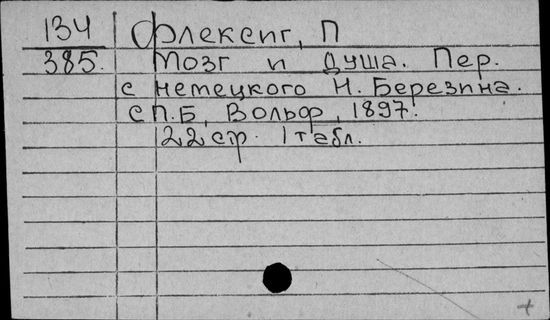 134 Флексиг, П
385. Мозг и Душа. Пер.
с немецкого Н. Березина.
СП.Б, Вольф, 1897.
22 стр. 1 табл.